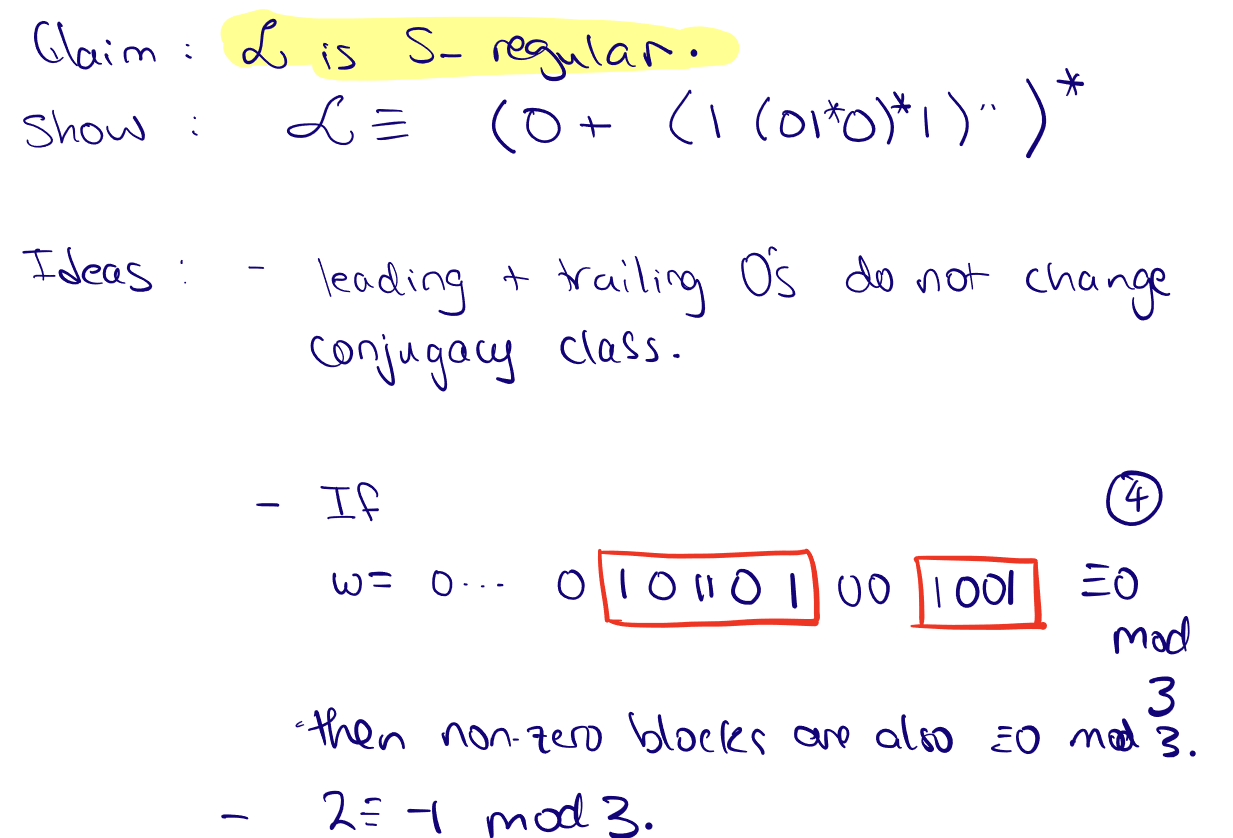 Claim : L is S- regular.
Show : L ≡ (0 + (1 (01*0)*1)'' )*
Ideas : - leading + trailing 0's do not change
conjugacy class.
- If ④
w = 0... 0 101101 00 1001 ≡0
mod
3
then non-zero blocks are also ≡0 mod 3.
- 2 ≡ -1 mod 3.